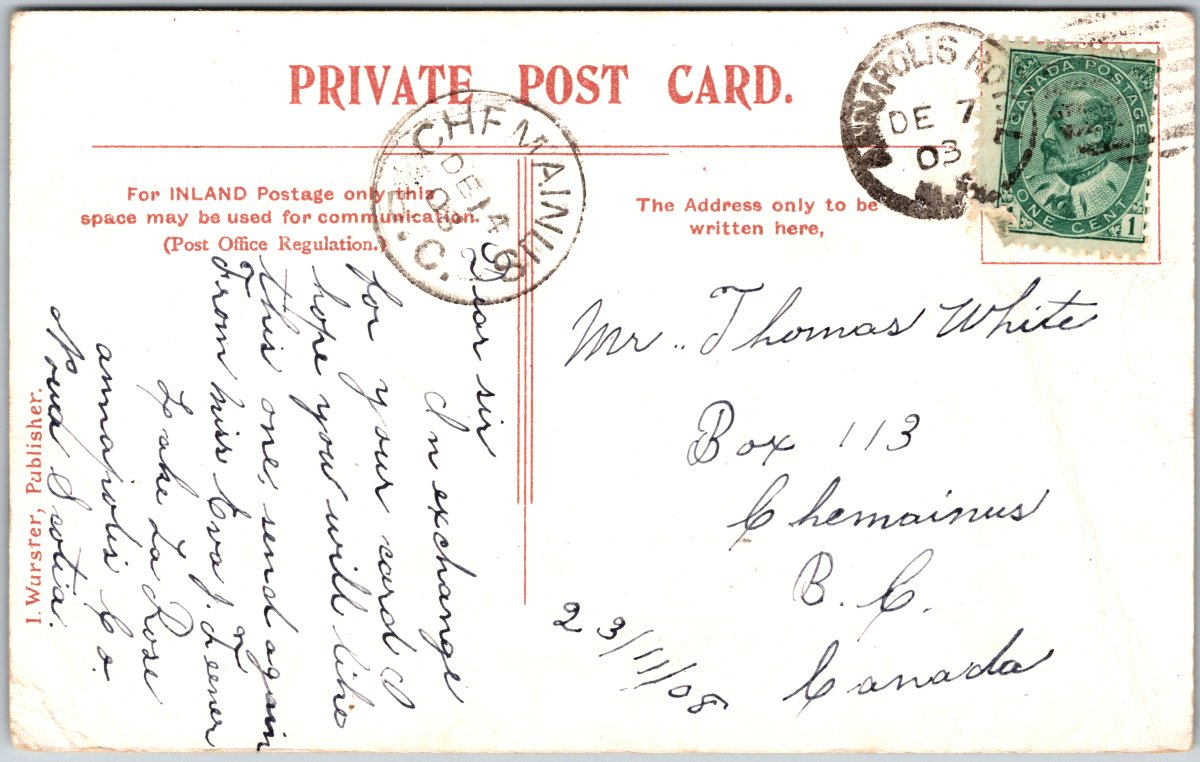 PRIVATE POST CARD.
ANNAPOLIS RO
DE 7
03
CANADA POSTAGE
ONE CENT
1
CHEMAINUS
DE 14
08
B.C.
For INLAND Postage only this
space may be used for communication.
(Post Office Regulation.)
The Address only to be
written here,
Dear sir
In exchange
for your card I
hope you will like
this one, send again
From miss Eva J. Feener
Lake La Rose
annapolis Co.
Nova Scotia.
Mr.. Thomas White
Box 113
Chemainus
B. C.
Canada
23/11/08
I. Wurster, Publisher.